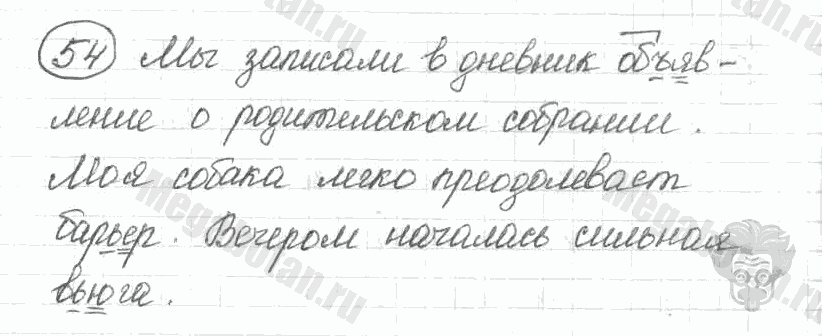 54 Мы записали в дневник объяв-
ление о родительском собрании.
Моя собака легко преодолевает
барьер. Вечером началась сильная
вьюга.
megabotan.ru
megabotan.ru
megabotan.ru